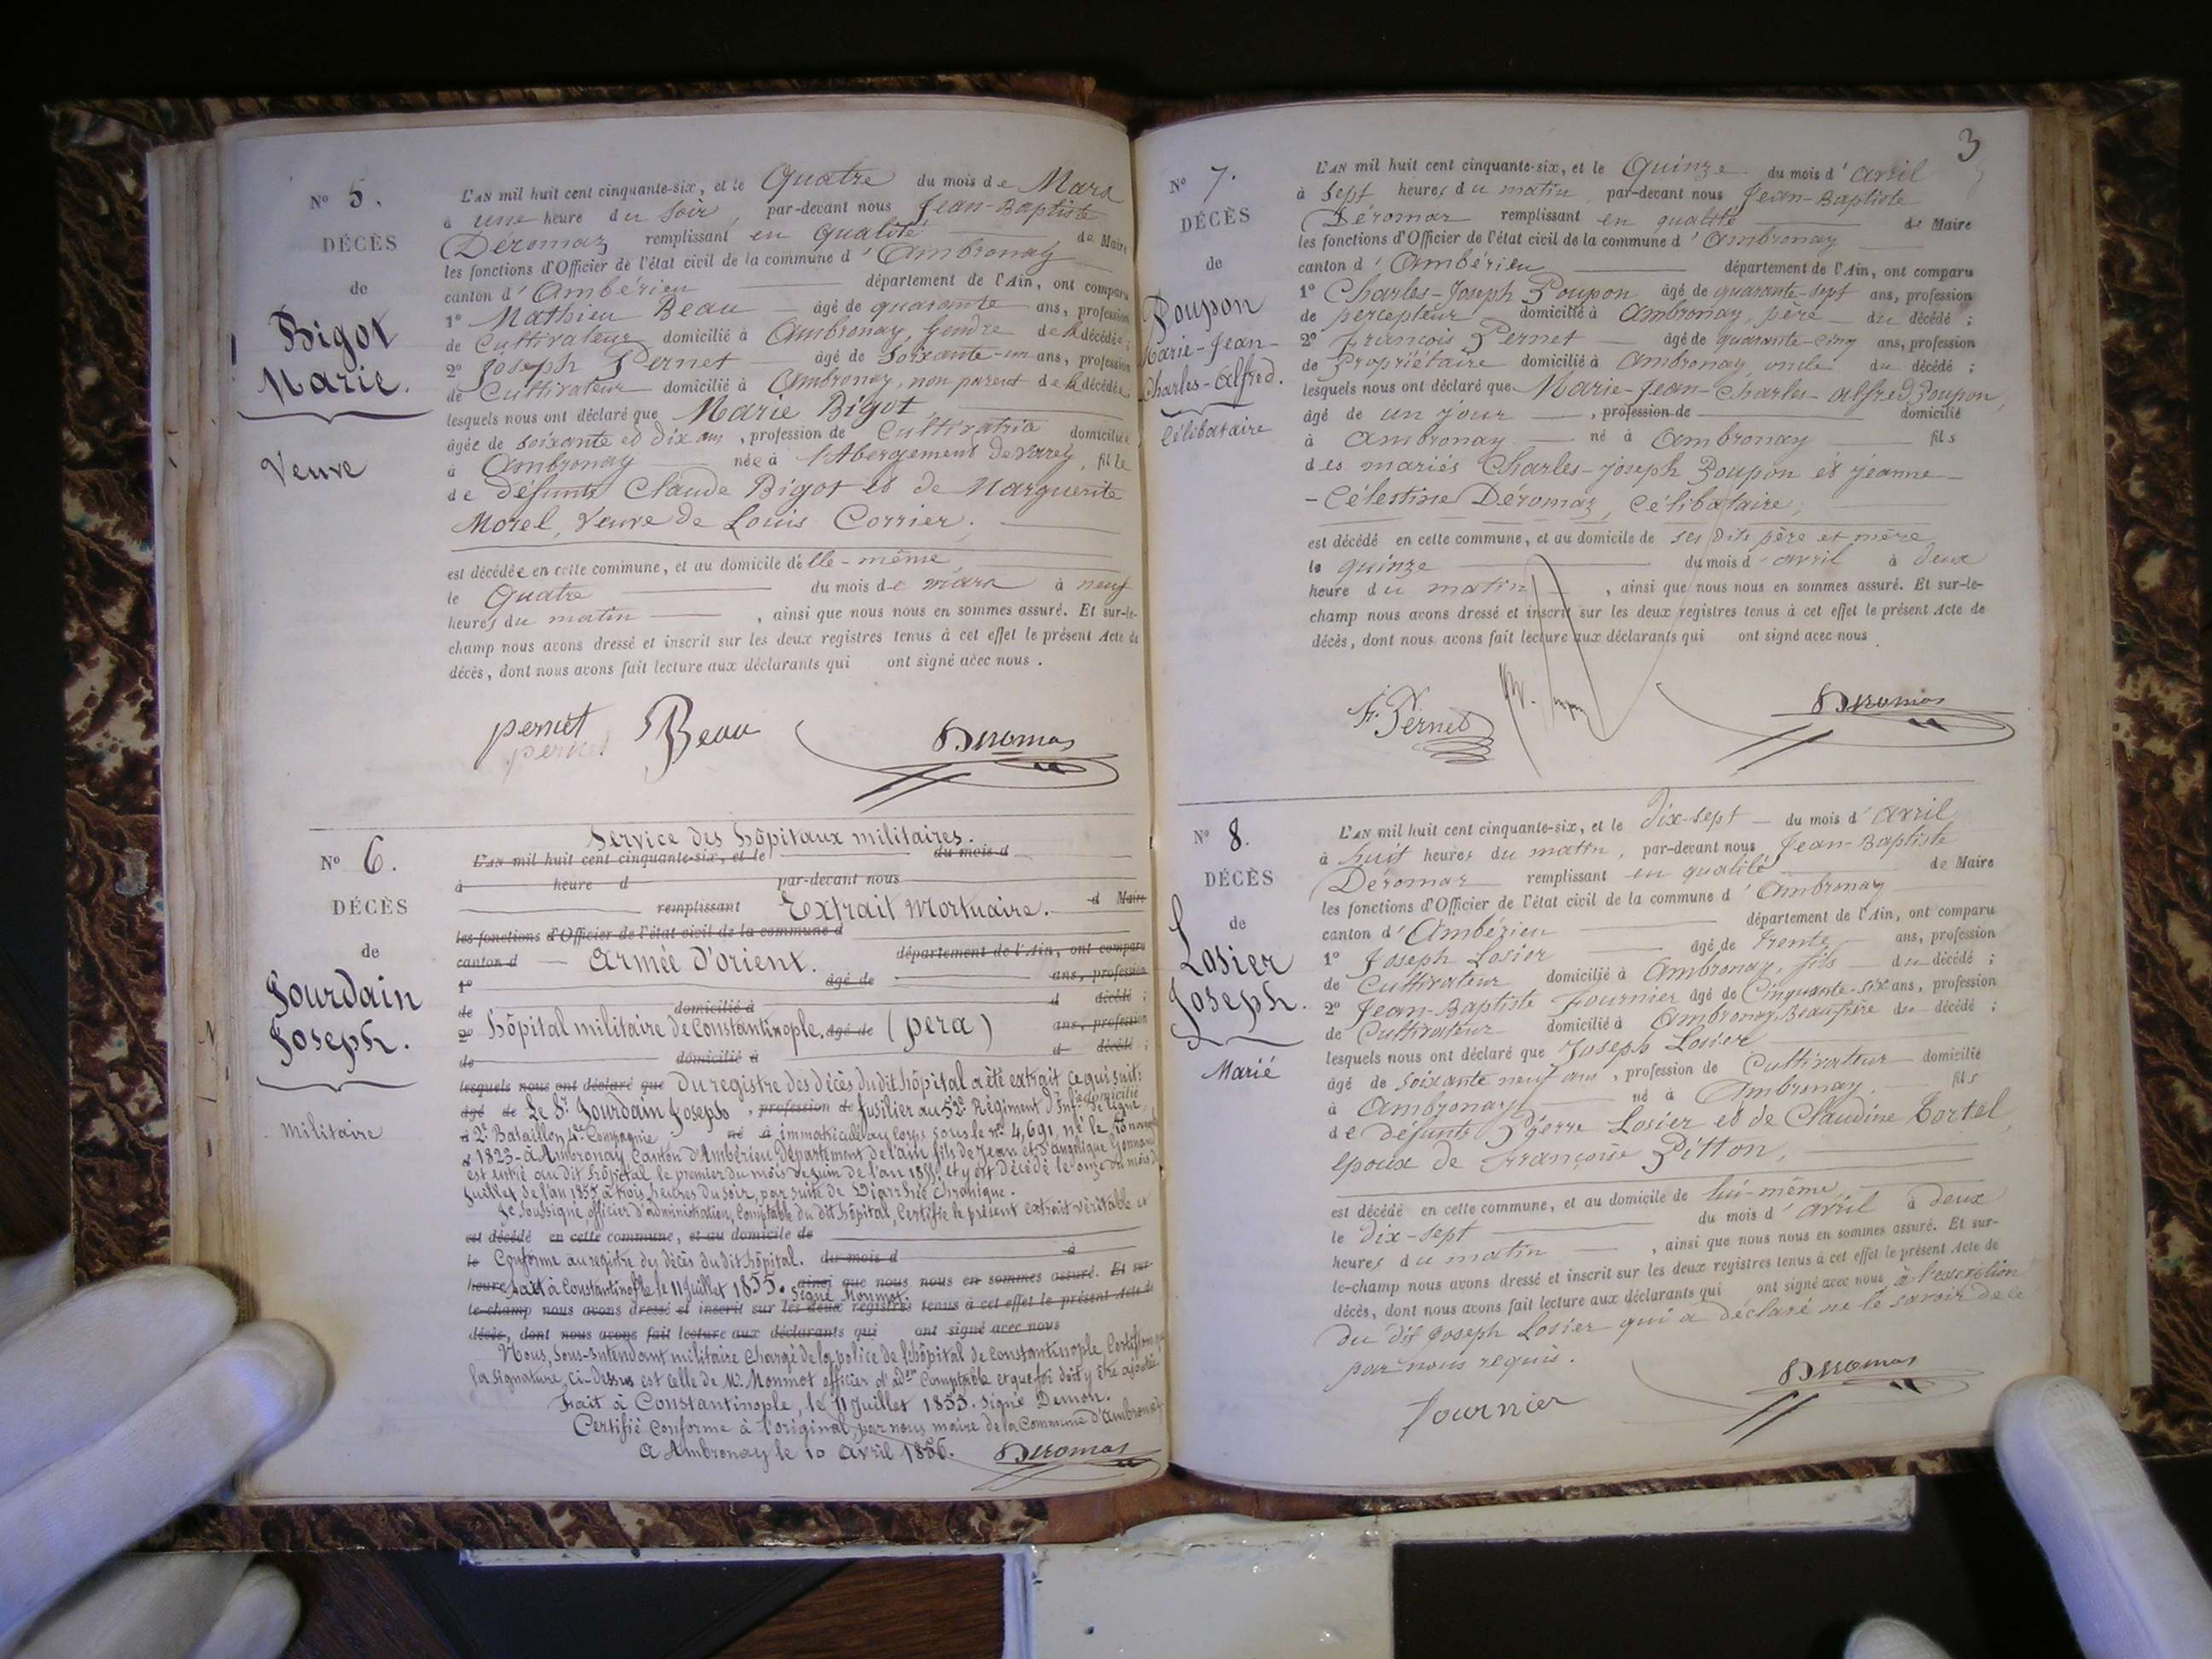 N° 5.
DÉCÈS
de
Bigot
Marie.
Veuve
L'AN mil huit cent cinquante-six, et le Quatre du mois de Mars
à une heure du soir, par-devant nous Jean-Baptiste
Déromaz remplissant en qualité de Maire
les fonctions d'Officier de l'état civil de la commune d'Ambronay
canton d'Ambérieu département de l'Ain, ont comparu
1° Mathieu Beau âgé de quarante ans, profession
de Cultivateur domicilié à Ambronay, Gendre de la décédée;
2° Joseph Pernet âgé de soixante-un ans, profession
de Cultivateur domicilié à Ambronay, non parent de la décédée
lesquels nous ont déclaré que Marie Bigot
âgée de soixante et dix ans, profession de Cultivatrice domiciliée
à Ambronay née à l'Abergement de Varey, fille
de défunts Claude Bigot et de Marguerite
Morel, Veuve de Louis Corrier,
est décédée en cette commune, et au domicile d'elle-même
le Quatre du mois de mars à neuf
heures du matin, ainsi que nous nous en sommes assuré. Et sur-le-
champ nous avons dressé et inscrit sur les deux registres tenus à cet effet le présent Acte de
décès, dont nous avons fait lecture aux déclarants qui ont signé avec nous.
pernet Beau Deromas
pernet
N° 6.
DÉCÈS
de
Jourdain
Joseph.
Militaire
Service des hôpitaux militaires.
L'AN mil huit cent cinquante-six, et le du mois d
à heure d par-devant nous
remplissant Extrait Mortuaire. d Maire
les fonctions d'Officier de l'état civil de la commune d
canton d Armée d'orient. département de l'Ain, ont comparu
1° âgé de ans, profession
de domicilié à d décédé;
2° hôpital militaire de Constantinople. âgé de (pera) ans, profession
de domicilié à d décédé;
lesquels nous ont déclaré que Du registre des décès du dit hôpital a été extrait ce qui suit:
âgé de Le Sr. Jourdain Joseph, profession de fusilier au 52e Régiment d'Inf. de ligne domicilié
à 2e Bataillon 4e Compagnie né à immatriculé au corps sous le n° 4,691, né le 10
1823 à Ambronay Canton d'Ambérieu Département de l'ain fils de Jean et d'angélique
est entré au dit hôpital le premier du mois de juin de l'an 1855, et y est décédé le onze du mois de
juillet de l'an 1855 à trois heures du soir, par suite de Diarrhée Chronique.
Je soussigné, officier d'administration, Comptable du dit hôpital, Certifie le présent extrait véritable et
est décédé en cette commune, et au domicile de
le Conforme au registre des décès du dit hôpital. du mois d à
heure fait à Constantinople le 11 Juillet 1855. ainsi que nous nous en sommes assuré. Et sur-
Signé Monmot.
le-champ nous avons dressé et inscrit sur les deux registres tenus à cet effet le présent Acte de
décès, dont nous avons fait lecture aux déclarants qui ont signé avec nous
Nous, Sous-intendant militaire chargé de la police de l'hôpital de Constantinople, Certifions que
la signature, ci-dessus est celle de Mr. Monmot officier d'adon Comptable et que foi doit y être ajoutée.
Fait à Constantinople, le 11 Juillet 1855. Signé Demon.
Certifié Conforme à l'original, par nous maire de la Commune d'Ambronay
A Ambronay le 10 Avril 1856. Deromas
3
N° 7.
DÉCÈS
de
Poupon
Marie-Jean-
Charles-Alfred.
Célibataire
L'AN mil huit cent cinquante-six, et le Quinze du mois d'avril
à sept heures du matin par-devant nous Jean-Baptiste
Déromaz remplissant en qualité de Maire
les fonctions d'Officier de l'état civil de la commune d'Ambronay
canton d'Ambérieu département de l'Ain, ont comparu
1° Charles-Joseph Poupon âgé de quarante-sept ans, profession
de percepteur domicilié à Ambronay, père du décédé;
2° François Pernet âgé de quarante-cinq ans, profession
de Propriétaire domicilié à Ambronay, oncle du décédé;
lesquels nous ont déclaré que Marie-Jean-Charles-alfred Poupon,
âgé de un jour, profession de domicilié
à Ambronay né à Ambronay fils
des mariés Charles-Joseph Poupon et Jeanne-
-Célestine Déromaz, Célibataire,
est décédé en cette commune, et au domicile de ses dits père et mère
le quinze du mois d'avril à deux
heure du matin, ainsi que nous nous en sommes assuré. Et sur-le-
champ nous avons dressé et inscrit sur les deux registres tenus à cet effet le présent Acte de
décès, dont nous avons fait lecture aux déclarants qui ont signé avec nous.
F. Pernet Deromas
N° 8.
DÉCÈS
de
Losier
Joseph.
Marié
L'AN mil huit cent cinquante-six, et le dix-sept du mois d'avril
à huit heures du matin, par-devant nous Jean-Baptiste
Déromaz remplissant en qualité de Maire
les fonctions d'Officier de l'état civil de la commune d'Ambronay
canton d'Ambérieu département de l'Ain, ont comparu
1° Joseph Losier âgé de trente ans, profession
de Cultivateur domicilié à Ambronay, fils du décédé;
2° Jean-Baptiste Fournier âgé de Cinquante-six ans, profession
de Cultivateur domicilié à Ambronay, Beaufrère du décédé;
lesquels nous ont déclaré que Joseph Losier
âgé de soixante neuf ans, profession de Cultivateur domicilié
à Ambronay né à Ambronay. fils
de défunts Pierre Losier et de Claudine Tortel,
époux de Françoise Pitton,
est décédé en cette commune, et au domicile de lui-même
le dix-sept du mois d'avril à deux
heures du matin, ainsi que nous nous en sommes assuré. Et sur-
le-champ nous avons dressé et inscrit sur les deux registres tenus à cet effet le présent Acte de
décès, dont nous avons fait lecture aux déclarants qui ont signé avec nous à l'exception
du dit Joseph Losier qui a déclaré ne le savoir de ce
par nous requis.
Fournier Deromas